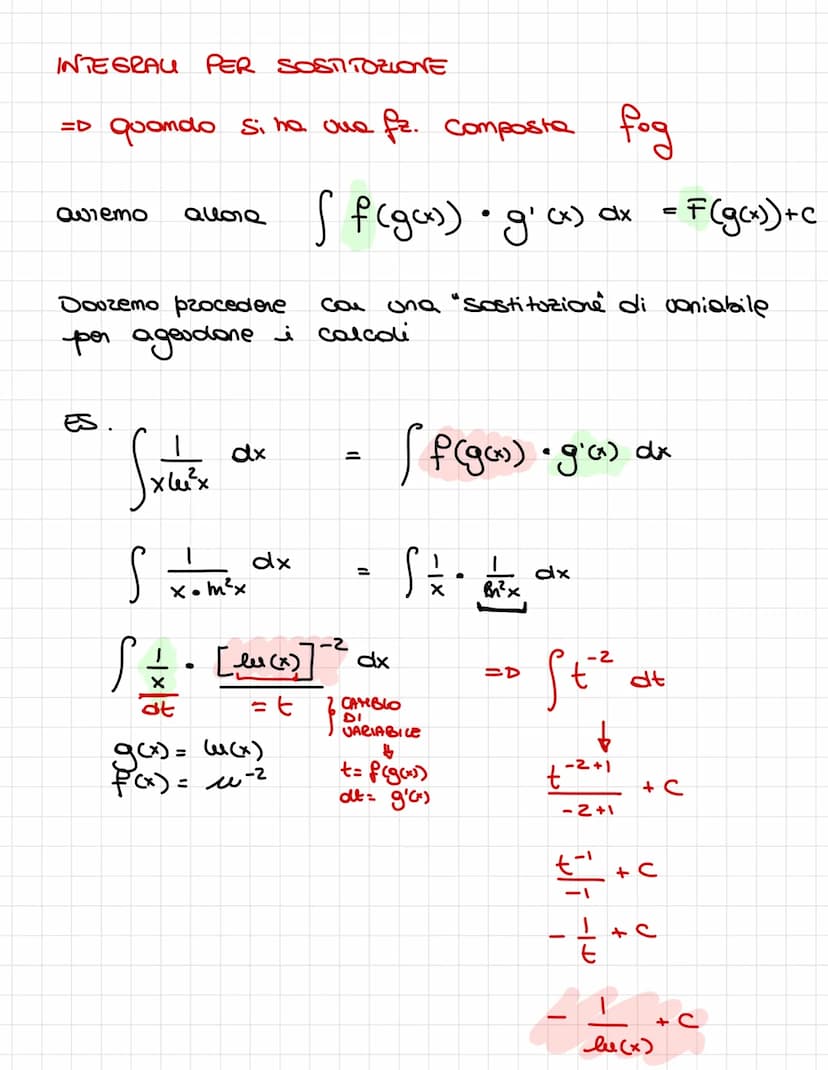 INTEGRALI PER SOSTITUZIONE
=> quando si ha una fz. composta fog
avremo allora ∫ f(g(x)) • g'(x) dx = F(g(x))+C
Dovremo procedere con una "sostituzione" di variabile
per agevolare i calcoli
ES.
∫ 1/(x ln²x) dx = ∫ f(g(x)) • g'(x) dx
∫ 1/(x • ln²x) dx = ∫ 1/x • 1/(ln²x) dx
∫ 1/x • [ln(x)]⁻² dx => ∫ t⁻² dt
dt = t } CAMBIO DI VARIABILE
g(x) = ln(x)
f(x) = u⁻²
t = f(g(x))
dt = g'(x)
t⁻²⁺¹/(-2+1) + C
t⁻¹/-1 + C
- 1/t + C
- 1/ln(x) + C